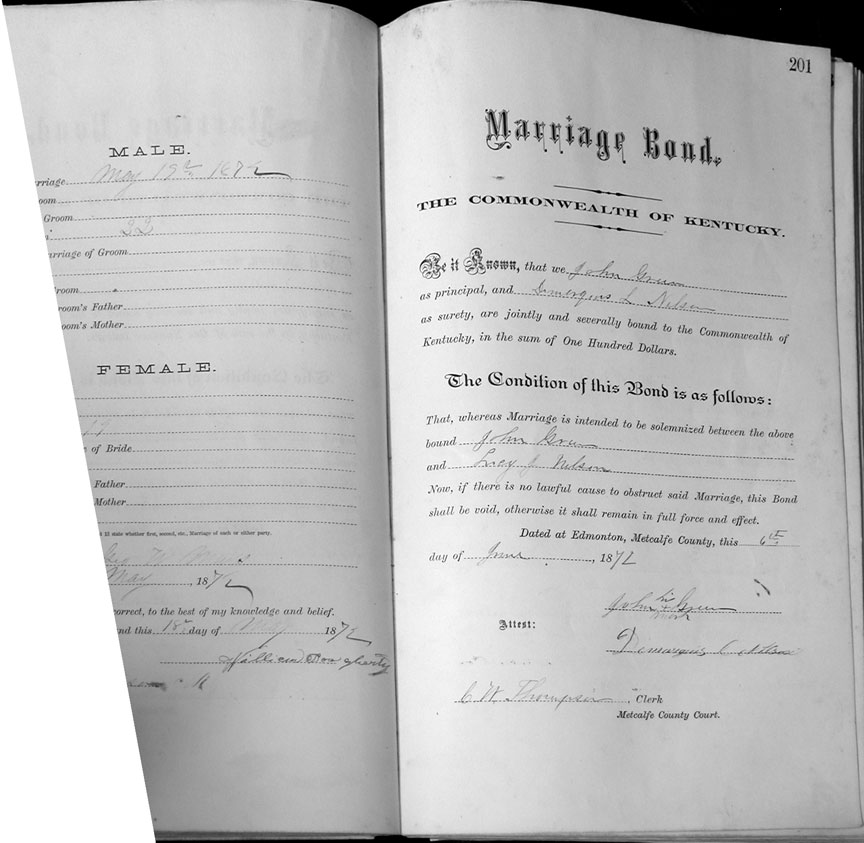 MALE.
rriage May 19th 1872
oom
Groom
22
arriage of Groom
Groom
oom's Father
oom's Mother
FEMALE.
19
e of Bride
Father
Mother
d 12 state whether first, second, etc., Marriage of each or either party.
Geo W
May, 1872
orrect, to the best of my knowledge and belief.
and this 18th day of May 1872
William Dougherty
201
Marriage Bond,
THE COMMONWEALTH OF KENTUCKY.
Be it Known, that we John Green
as principal, and Demarquis L Nelson
as surety, are jointly and severally bound to the Commonwealth of
Kentucky, in the sum of One Hundred Dollars.
The Condition of this Bond is as follows:
That, whereas Marriage is intended to be solemnized between the above
bound John Green
and Lucy J Nelson
Now, if there is no lawful cause to obstruct said Marriage, this Bond
shall be void, otherwise it shall remain in full force and effect.
Dated at Edmonton, Metcalfe County, this 6th
day of June, 1872
John his x mark Green
Attest:
Demarquis L Nelson
C W Thompson, Clerk
Metcalfe County Court.